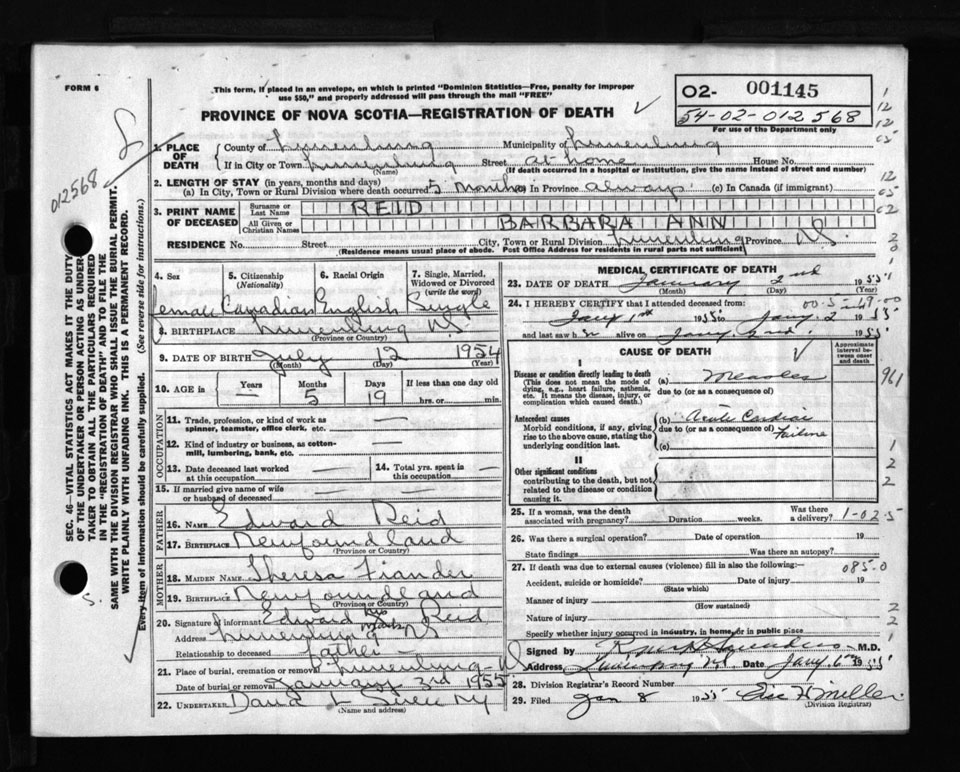 FORM 6
This form, if placed in an envelope, on which is printed "Dominion Statistics—Free, penalty for improper
use $50," and properly addressed will pass through the mail "FREE"
PROVINCE OF NOVA SCOTIA—REGISTRATION OF DEATH
O2- 001145
54-02-012568
For use of the Department only
012568
1. PLACE OF DEATH
County of Lunenburg Municipality of Lunenburg
If in City or Town Lunenburg Street at home House No.
(Name) (If death occurred in a hospital or institution, give the name instead of street and number)
2. LENGTH OF STAY (in years, months and days)
(a) In City, Town or Rural Division where death occurred 5 months (b) In Province always (c) In Canada (if immigrant)
3. PRINT NAME OF DECEASED
Surname or Last Name REID
All Given or Christian Names BARBARA ANN
RESIDENCE No. Street City, Town or Rural Division Lunenburg Province N.S.
(Residence means usual place of abode. Post Office Address for residents in rural parts not sufficient)
4. Sex Female
5. Citizenship (Nationality) Canadian
6. Racial Origin English
7. Single, Married, Widowed or Divorced (write the word) Single
8. BIRTHPLACE Lunenburg N.S.
(Province or Country)
9. DATE OF BIRTH July 12 1954
(Month) (Day) (Year)
10. AGE in Years — Months 5 Days 19 If less than one day old hrs. or min.
OCCUPATION
11. Trade, profession, or kind of work as spinner, teamster, office clerk, etc. —
12. Kind of industry or business, as cotton-mill, lumbering, bank, etc. —
13. Date deceased last worked at this occupation — 14. Total yrs. spent in this occupation —
15. If married give name of wife or husband of deceased — —
FATHER
16. NAME Edward Reid
17. BIRTHPLACE Newfoundland
(Province or Country)
MOTHER
18. MAIDEN NAME Theresa Fiander
19. BIRTHPLACE Newfoundland
(Province or Country)
20. Signature of informant Edward his mark Reid
Address Lunenburg NS
Relationship to deceased father
21. Place of burial, cremation or removal Lunenburg
Date of burial or removal January 3rd 1955
22. UNDERTAKER
(Name and address)
MEDICAL CERTIFICATE OF DEATH
23. DATE OF DEATH January 2nd 1955
(Month) (Day) (Year)
24. I HEREBY CERTIFY that I attended deceased from:
Jany 1st 1955 to Jany. 2 1955
and last saw h alive on Jany. 2nd 1955
CAUSE OF DEATH
Approximate interval between onset and death
I
Disease or condition directly leading to death
(This does not mean the mode of dying, e.g., heart failure, asthenia, etc. It means the disease, injury, or complication which caused death.)
(a) Measles
due to (or as a consequence of)
Antecedent causes
Morbid conditions, if any, giving rise to the above cause, stating the underlying condition last.
(b) Acute Cardiac Failure
due to (or as a consequence of)
(c)
II
Other significant conditions
contributing to the death, but not related to the disease or condition causing it.
25. If a woman, was the death associated with pregnancy? Duration weeks. Was there a delivery? 1-02-5
26. Was there a surgical operation? Date of operation 19
State findings Was there an autopsy?
27. If death was due to external causes (violence) fill in also the following:— 085.0
Accident, suicide or homicide? Date of injury 19
(State which)
Manner of injury
(How sustained)
Nature of injury
Specify whether injury occurred in industry, in home, or in public place
Signed by Saunders M.D.
Address Lunenburg N.S. Date Jany. 6th 1955
28. Division Registrar's Record Number
29. Filed Jan 8 1955 Miller
(Division Registrar)
SEC. 46—VITAL STATISTICS ACT MAKES IT THE DUTY
OF THE UNDERTAKER OR PERSON ACTING AS UNDER-
TAKER TO OBTAIN ALL THE PARTICULARS REQUIRED
IN THE "REGISTRATION OF DEATH" AND TO FILE THE
SAME WITH THE DIVISION REGISTRAR WHO SHALL ISSUE THE BURIAL PERMIT.
WRITE PLAINLY WITH UNFADING INK. THIS IS A PERMANENT RECORD.
Every item of information should be carefully supplied. (See reverse side for instructions.)